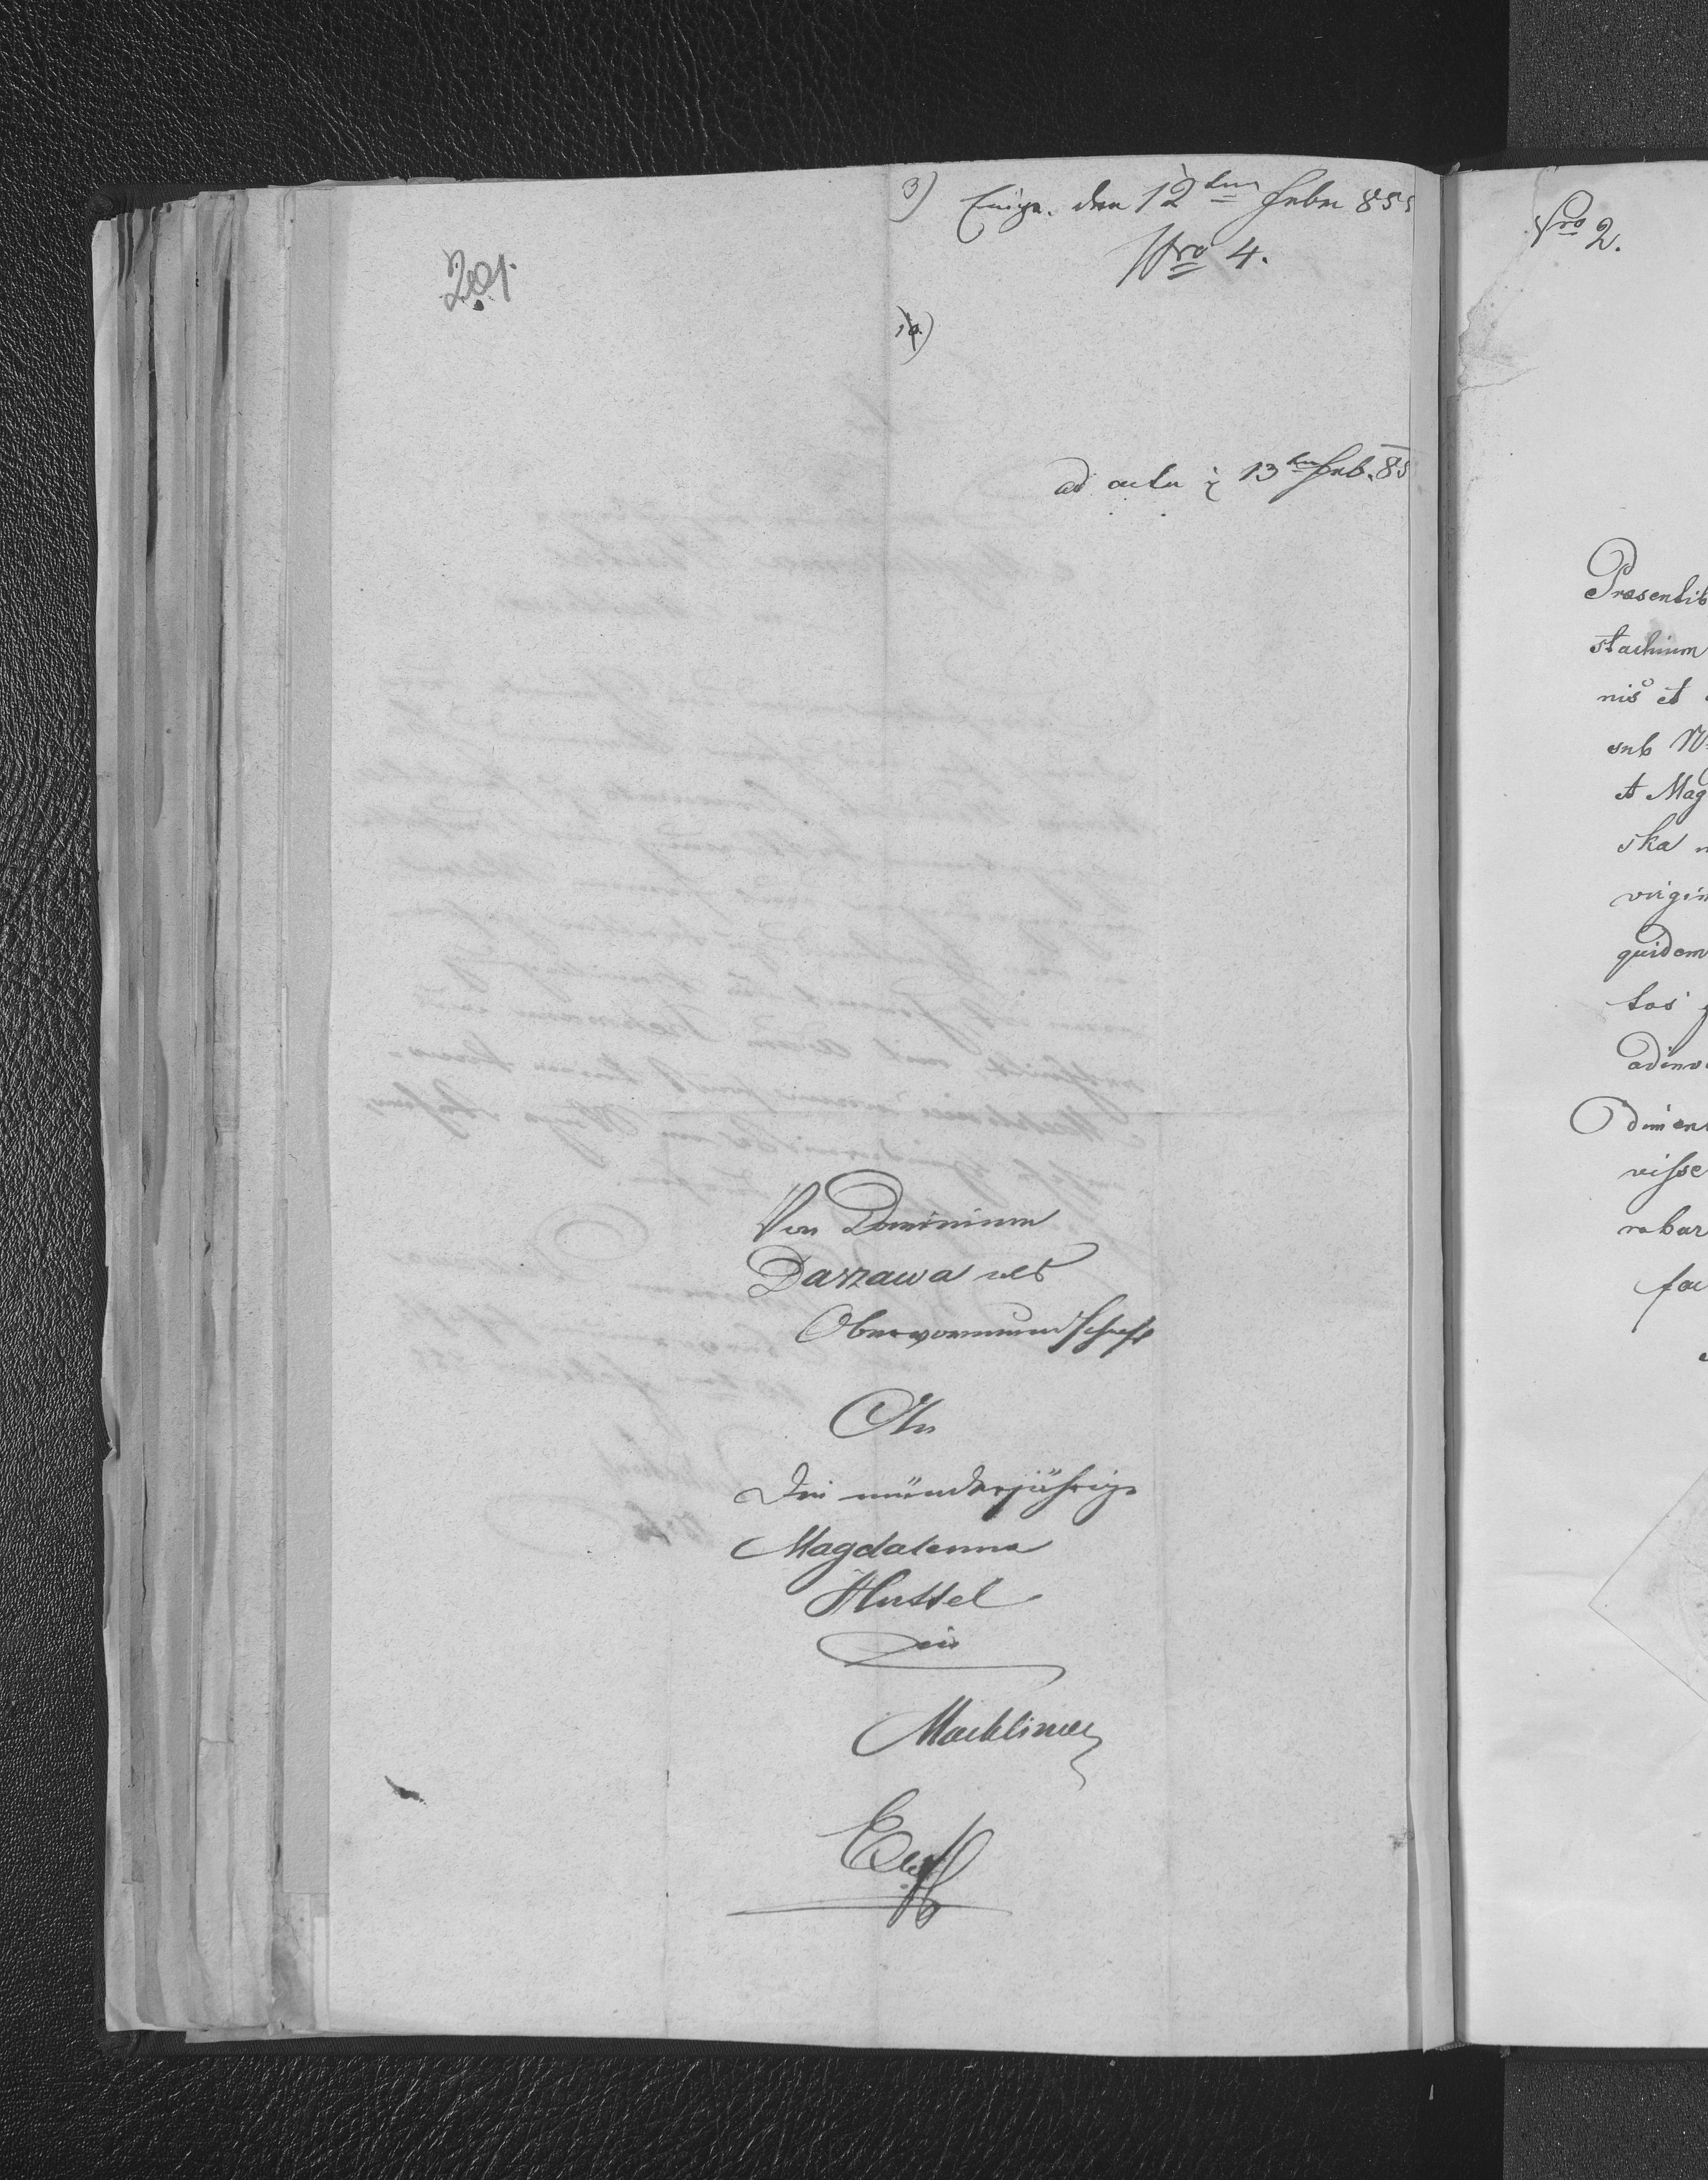 3) Einge. den 12ten Febr 855
Nro 4.
201.
ad acta 13ten Feb. 85
Von Dominium
Darzawa als
Obervormundschaft
An
die minderjährige
Magdalenna
Huttel
in
Machliniec
Ex off
Nro 2.
Præsentib
stachium
nis et
sub N
et Mag
ska
virgin
quidem
tos
adinve
dimen
visse
robar
fac